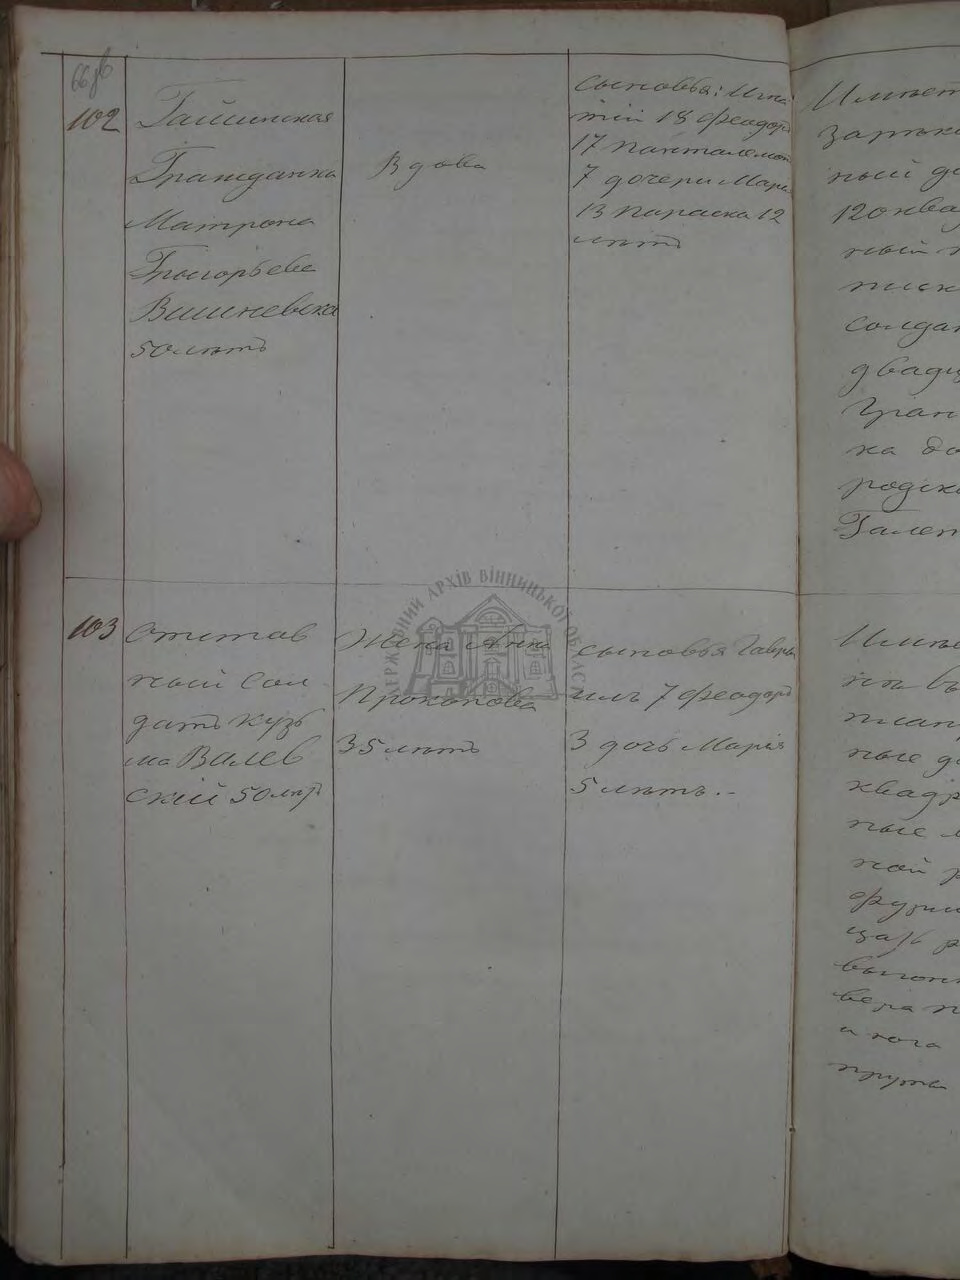 66 об
102
Гайсинская
Гражданка
Матрона
Григорьева
Вишневска
50 лѣтъ
Вдова
сыновья: Игна
тій 18 Феодоръ
17 Панталемон
7 дочери Марія
13 Параска 12
лѣтъ
Имѣет
ный до
120 ква
ный
солда
двадц
Гран
ка до
родск
103
Отстав
ный Сол
датъ Кузь
ма Валев
скій 50 лѣт
Жена Анна
Прокопова
35 лѣтъ
сыновья Гавры
илъ 7 Феодоръ
3 дочь Марія
5 лѣтъ. -
Имѣе
ные д
квадр
ные
ной
выгон
и кога
ДЕРЖАВНИЙ АРХІВ ВІННИЦЬКОЇ ОБЛАСТІ